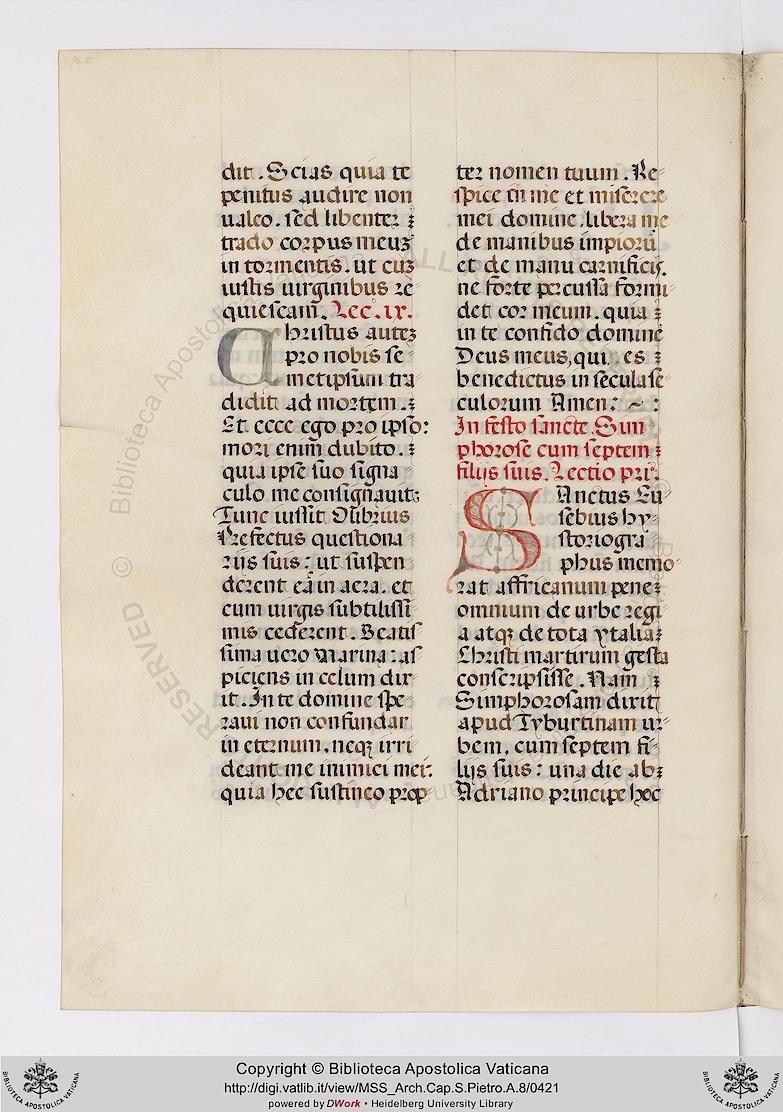 dit. Scias quia te
penitus audire non
ualeo. sed libenter
trado corpus meuȝ
in tormentis. ut cuȝ
iustis uirginibus re
quiescam̄. Lec̄. ix.
Christus auteȝ
pro nobis se
metipsum tra
didit ad mortem.
Et ecce ego pro ipso:
mori enim dubito.
quia ipse suo signa
culo me consignauit:
Tunc iussit Olibrius
Prefectus questiona
riis suis: ut suspen
derent eā in aera. et
cum uirgis subtilissi
mis cederent. Beatis
sima uero Marina: as
piciens in celum dix
it. In te domine spe
raui non confundar
in eternum. neqȝ irri
deant me inimici mei.
quia hec sustineo prop
ter nomen tuum. Re
spice in me et miserere
mei domine. libera me
de manibus impiorū
et de manu carnificis.
ne forte percussa formi
det cor meum. quia
in te confido domine
Deus meus, qui es
benedictus in secula se
culorum Amen: ~ :
In festo sancte Sim
phorose cum septem
filijs suis. Lectio pri.
SAnctus Eu
sebius hy
storiogra
phus memo
rat affricanum pene
omnium de urbe regi
a atqȝ de tota ytalia
Christi martirum gesta
conscripsisse. Nam
Simphorosam dixit
apud Tyburtinam ur
bem, cum septem fi
lijs suis: una die ab
Adriano principe hec
© Biblioteca Apostolica Vaticana
ALL RIGHTS RESERVED
Copyright © Biblioteca Apostolica Vaticana
http://digi.vatlib.it/view/MSS_Arch.Cap.S.Pietro.A.8/0421
powered by DWork • Heidelberg University Library
BIBLIOTECA APOSTOLICA VATICANA
BIBLIOTECA APOSTOLICA VATICANA